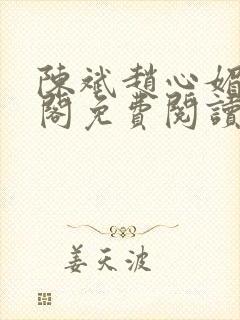 陳斌趙心媚
閣免費閱讀
姜天波